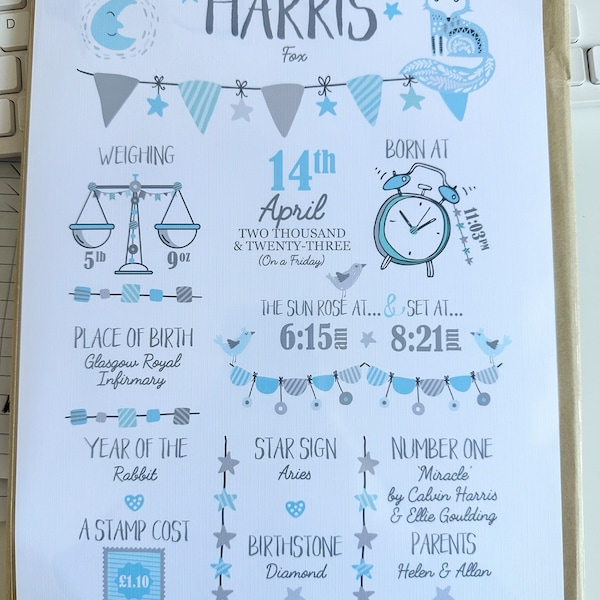 HARRIS
Fox
WEIGHING
5lb 9oz
14th
April
TWO THOUSAND
& TWENTY-THREE
(On a Friday)
BORN AT
11:03PM
THE SUN ROSE AT... & SET AT...
6:15am 8:21pm
PLACE OF BIRTH
Glasgow Royal
Infirmary
YEAR OF THE
Rabbit
STAR SIGN
Aries
NUMBER ONE
'Miracle'
by Calvin Harris
& Ellie Goulding
A STAMP COST
£1.10
BIRTHSTONE
Diamond
PARENTS
Helen & Allan